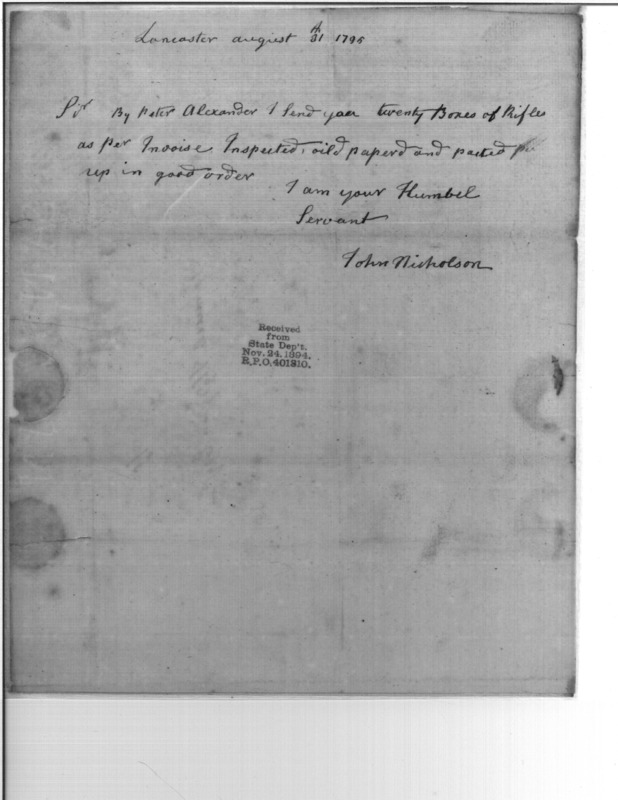 Lancaster august 31 1795
Sir By Peter Alexander I Send you twenty Boxes of Rifles
as per Invoise Inspected, oild paperd and packed
up in good order
I am your Humbel
Servant
John Nicholson
Received
from
State Dep't.
Nov. 24, 1894.
R.P.O. 401810.